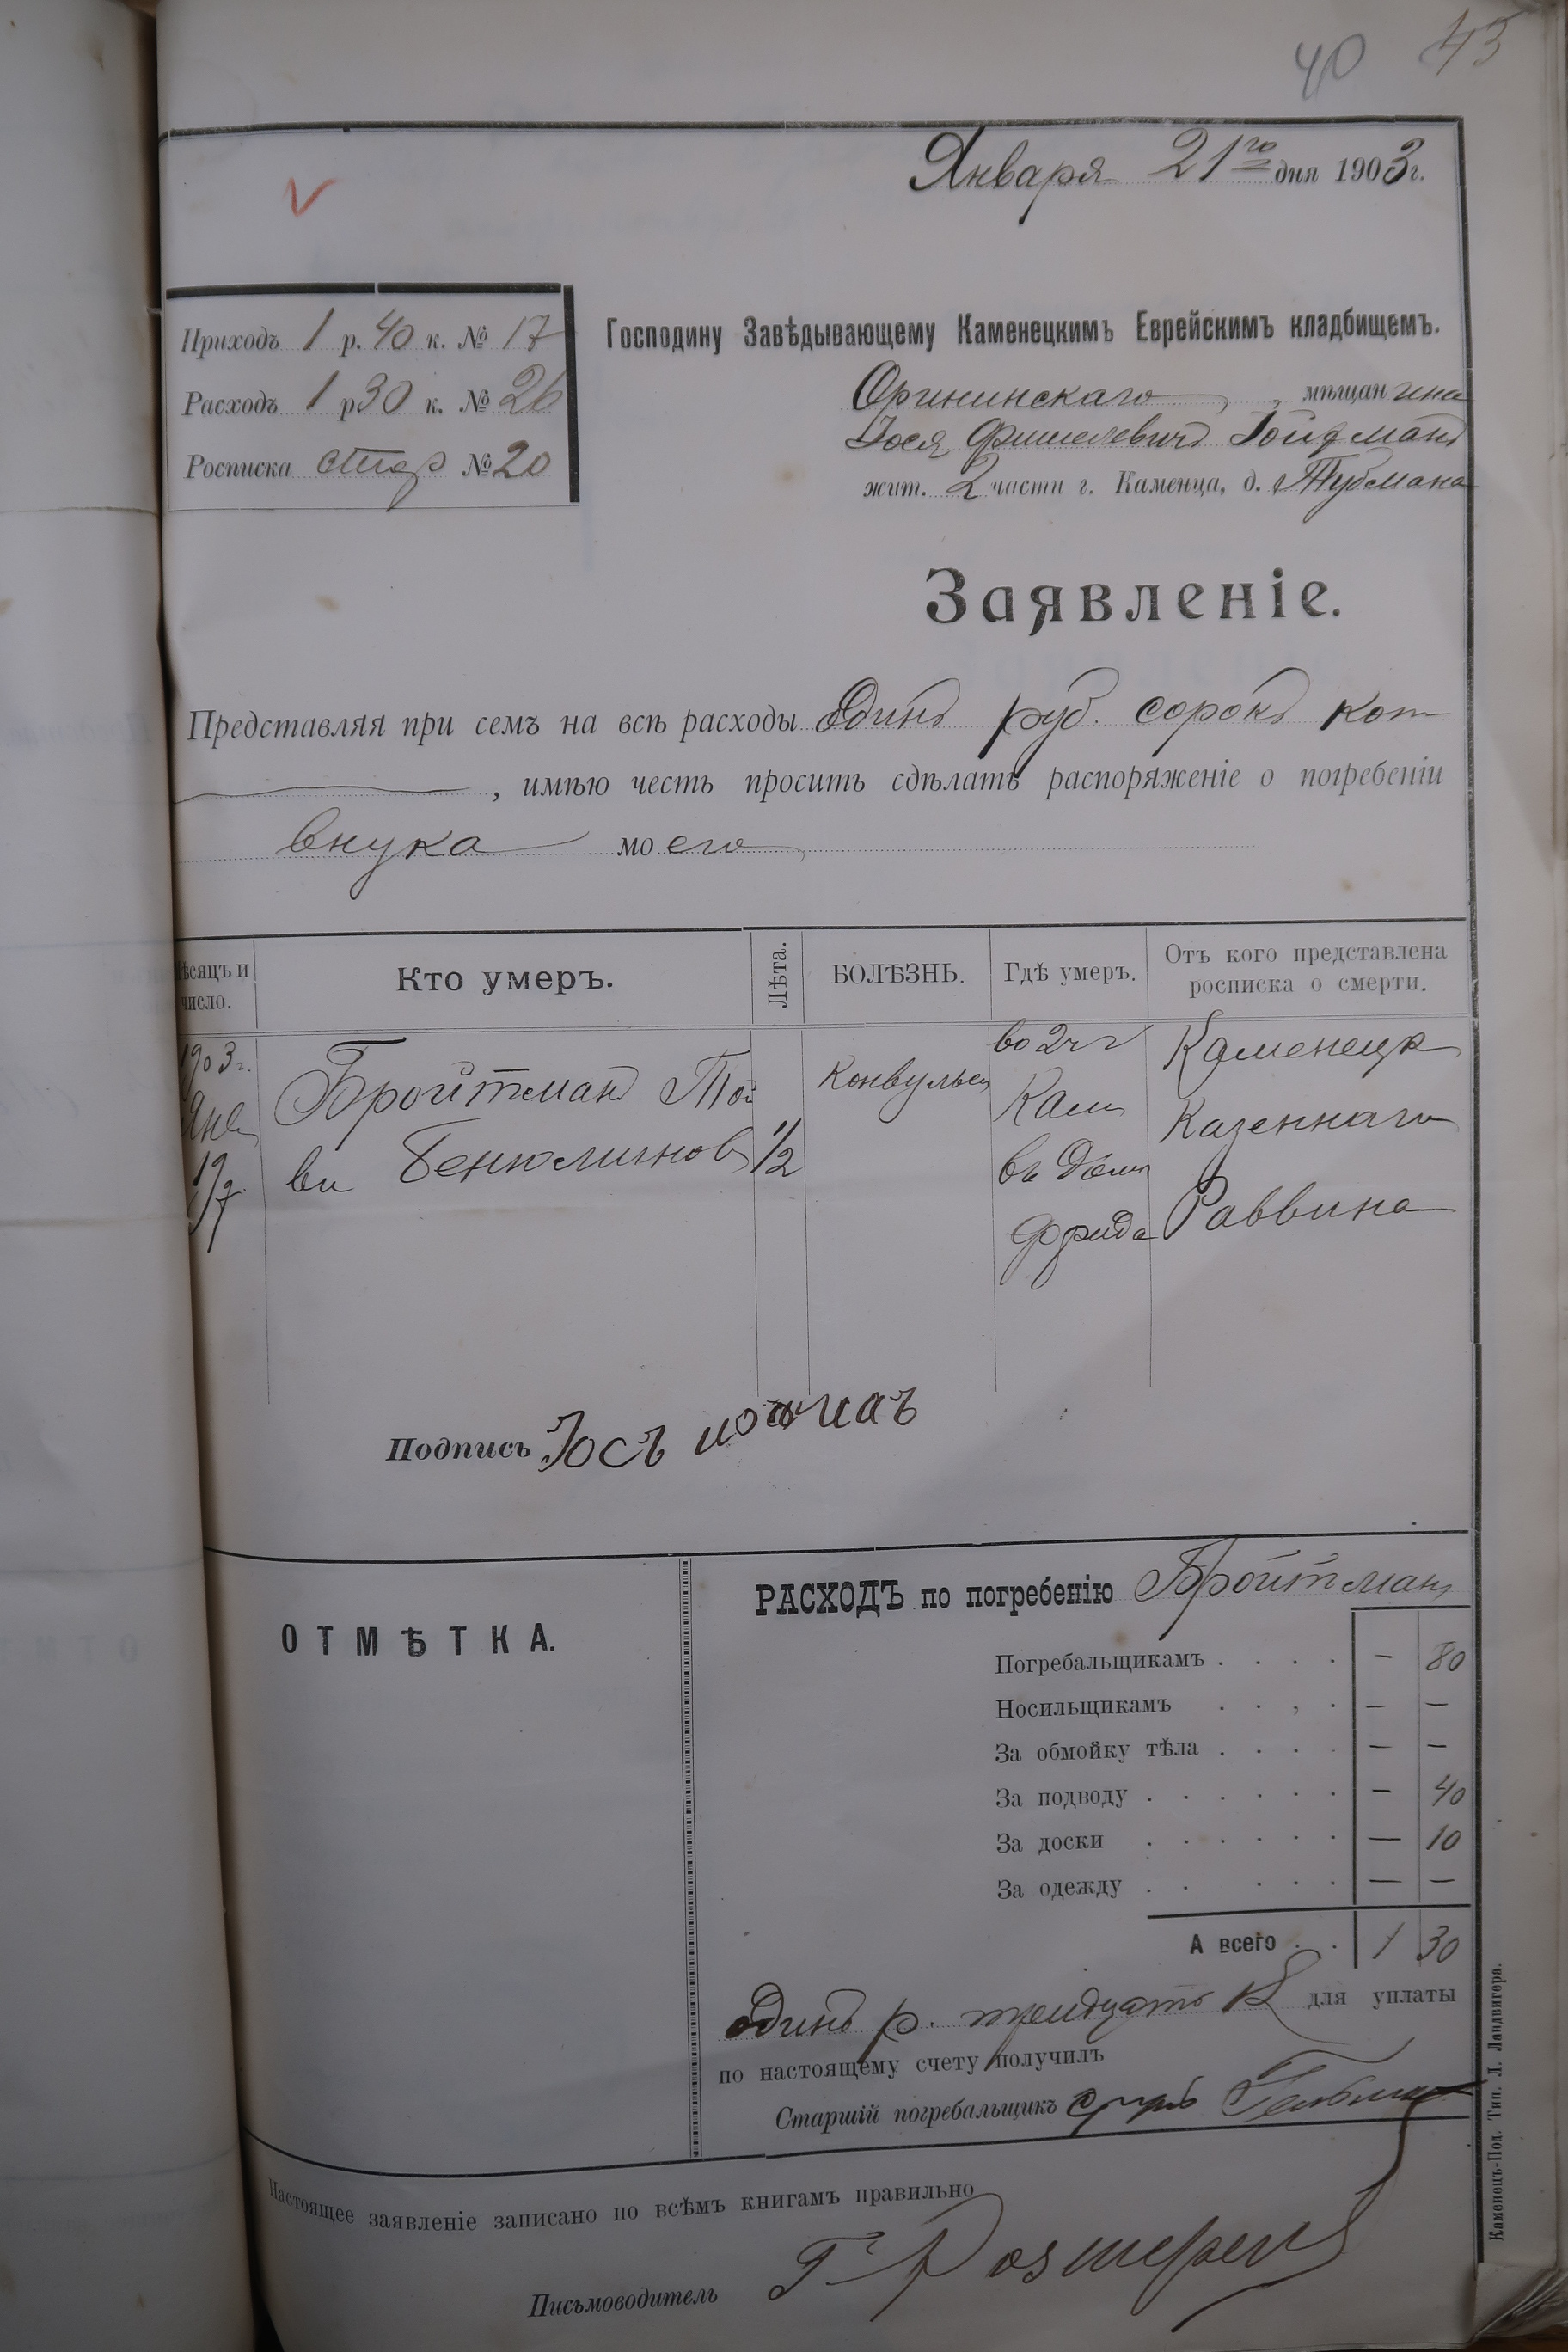 40 43
Января 21го дня 1903 г.
Приходъ 1 р. 40 к. № 17
Расходъ 1 р 30 к. № 26
Росписка стар № 20
Господину Завѣдывающему Каменецкимъ Еврейскимъ кладбищемъ.
Орининскаго, мѣщанина
Іося Фишелевичъ
жит. 2 части г. Каменца, д. Тубмана
Заявленіе.
Представляя при семъ на всѣ расходы Одинъ руб. сорокъ коп
, имѣю честь просить сдѣлать распоряженіе о погребеніи
внука моего
Мѣсяцъ и число. Кто умеръ. Лѣта. БОЛѢЗНЬ. Гдѣ умеръ. Отъ кого представлена росписка о смерти.
1903 г. Янв 19/7
Бройтман Той
ви Бенюминов
1/2
Конвульси
во 2 ч г
Кам
въ дом
Фрида
Каменецк
Казеннаго
Раввина
Подпись Іосъ
ОТМѢТКА.
РАСХОДЪ по погребенію Бройтман
Погребальщикамъ . . . . — 80
Носильщикамъ . . , . — —
За обмойку тѣла . . . . — —
За подводу . . . . . . — 40
За доски . . . . . . — 10
За одежду . . . . . . — —
А всего . . 1 30
Одинъ р. тридцать к для уплаты
по настоящему счету получилъ
Старшій погребальщикъ
Настоящее заявленіе записано по всѣмъ книгамъ правильно
Письмоводитель Г.
Каменецъ-Под. Тип. Л. Ландвигера.